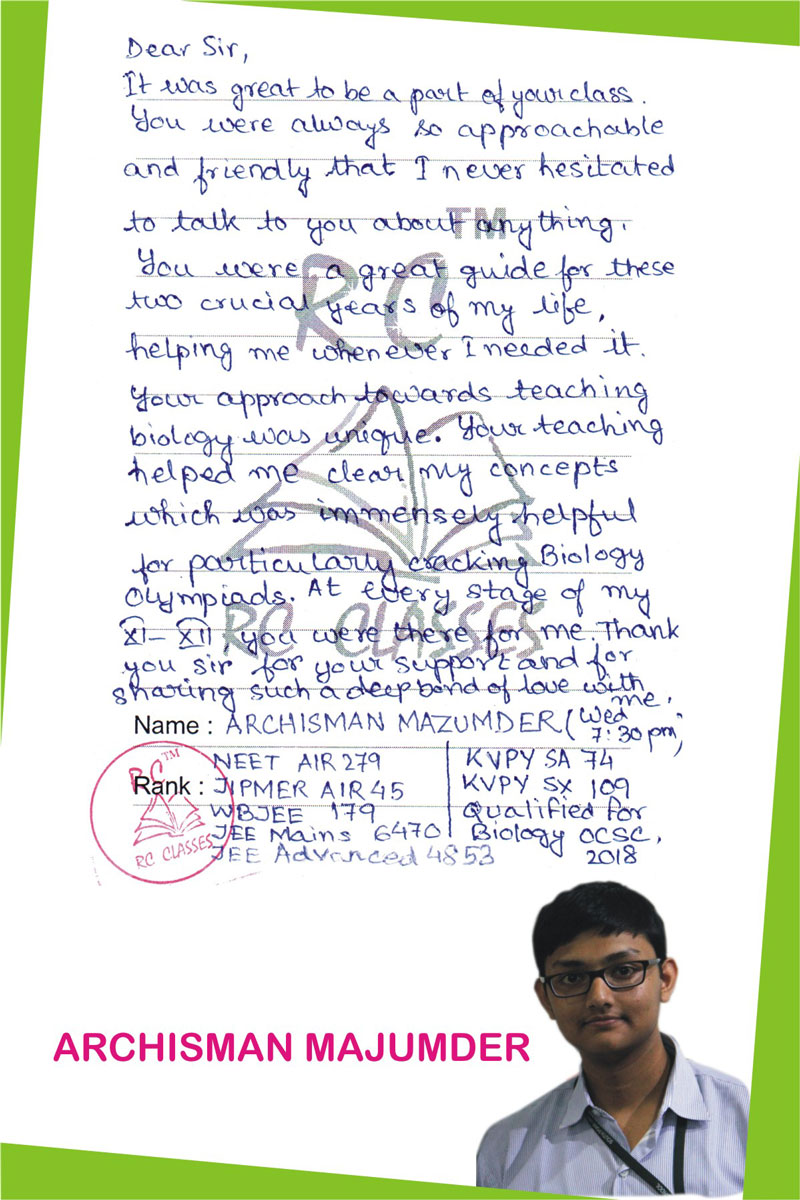 Dear Sir,
It was great to be a part of your class.
You were always so approachable
and friendly that I never hesitated
to talk to you about anything.
You were a great guide for these
two crucial years of my life,
helping me whenever I needed it.
Your approach towards teaching
biology was unique. Your teaching
helped me clear my concepts
which was immensely helpful
for particularly cracking Biology
Olympiads. At every stage of my
XI - XII, you were there for me. Thank
you sir for your support and for
sharing such a deep bond of love with
me.
Name : ARCHISMAN MAZUMDER (Wed
7:30 pm)
Rank : NEET AIR 279
JIPMER AIR 45
WBJEE 179
JEE Mains 6470
JEE Advanced 4853
KVPY SA 74
KVPY SX 109
Qualified for
Biology OCSC,
2018
RC TM
RC CLASSES
RC TM
RC CLASSES
ARCHISMAN MAJUMDER